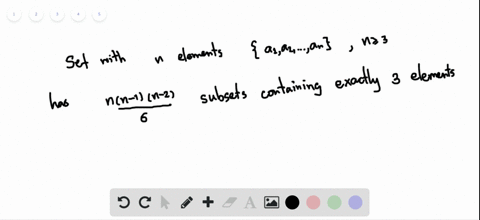 1 2 3 4 5
Set with n elements {a₁,a₂...,aₙ} , n≥3
has n(n-1)(n-2)/6 subsets containing exactly 3 elements
A